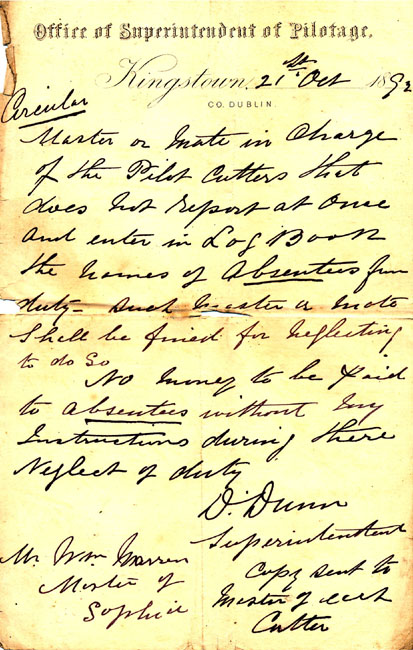 Office of Superintendent of Pilotage,
Kingstown, 21st Oct 1892
CO. DUBLIN.
Circular
Master or Mate in Charge
of the Pilot Cutters that
does not report at Once
and enter in Log Book
the Names of Absentees from
duty - Such Master or Mate
Shall be fined for Neglecting
to do So
No Money to be paid
to absentees without my
Instructions during there
Neglect of duty
D. Dunn
Superintendent
Mr Wm Warren
Master of
Sophia
Copy sent to
Master of each
Cutter